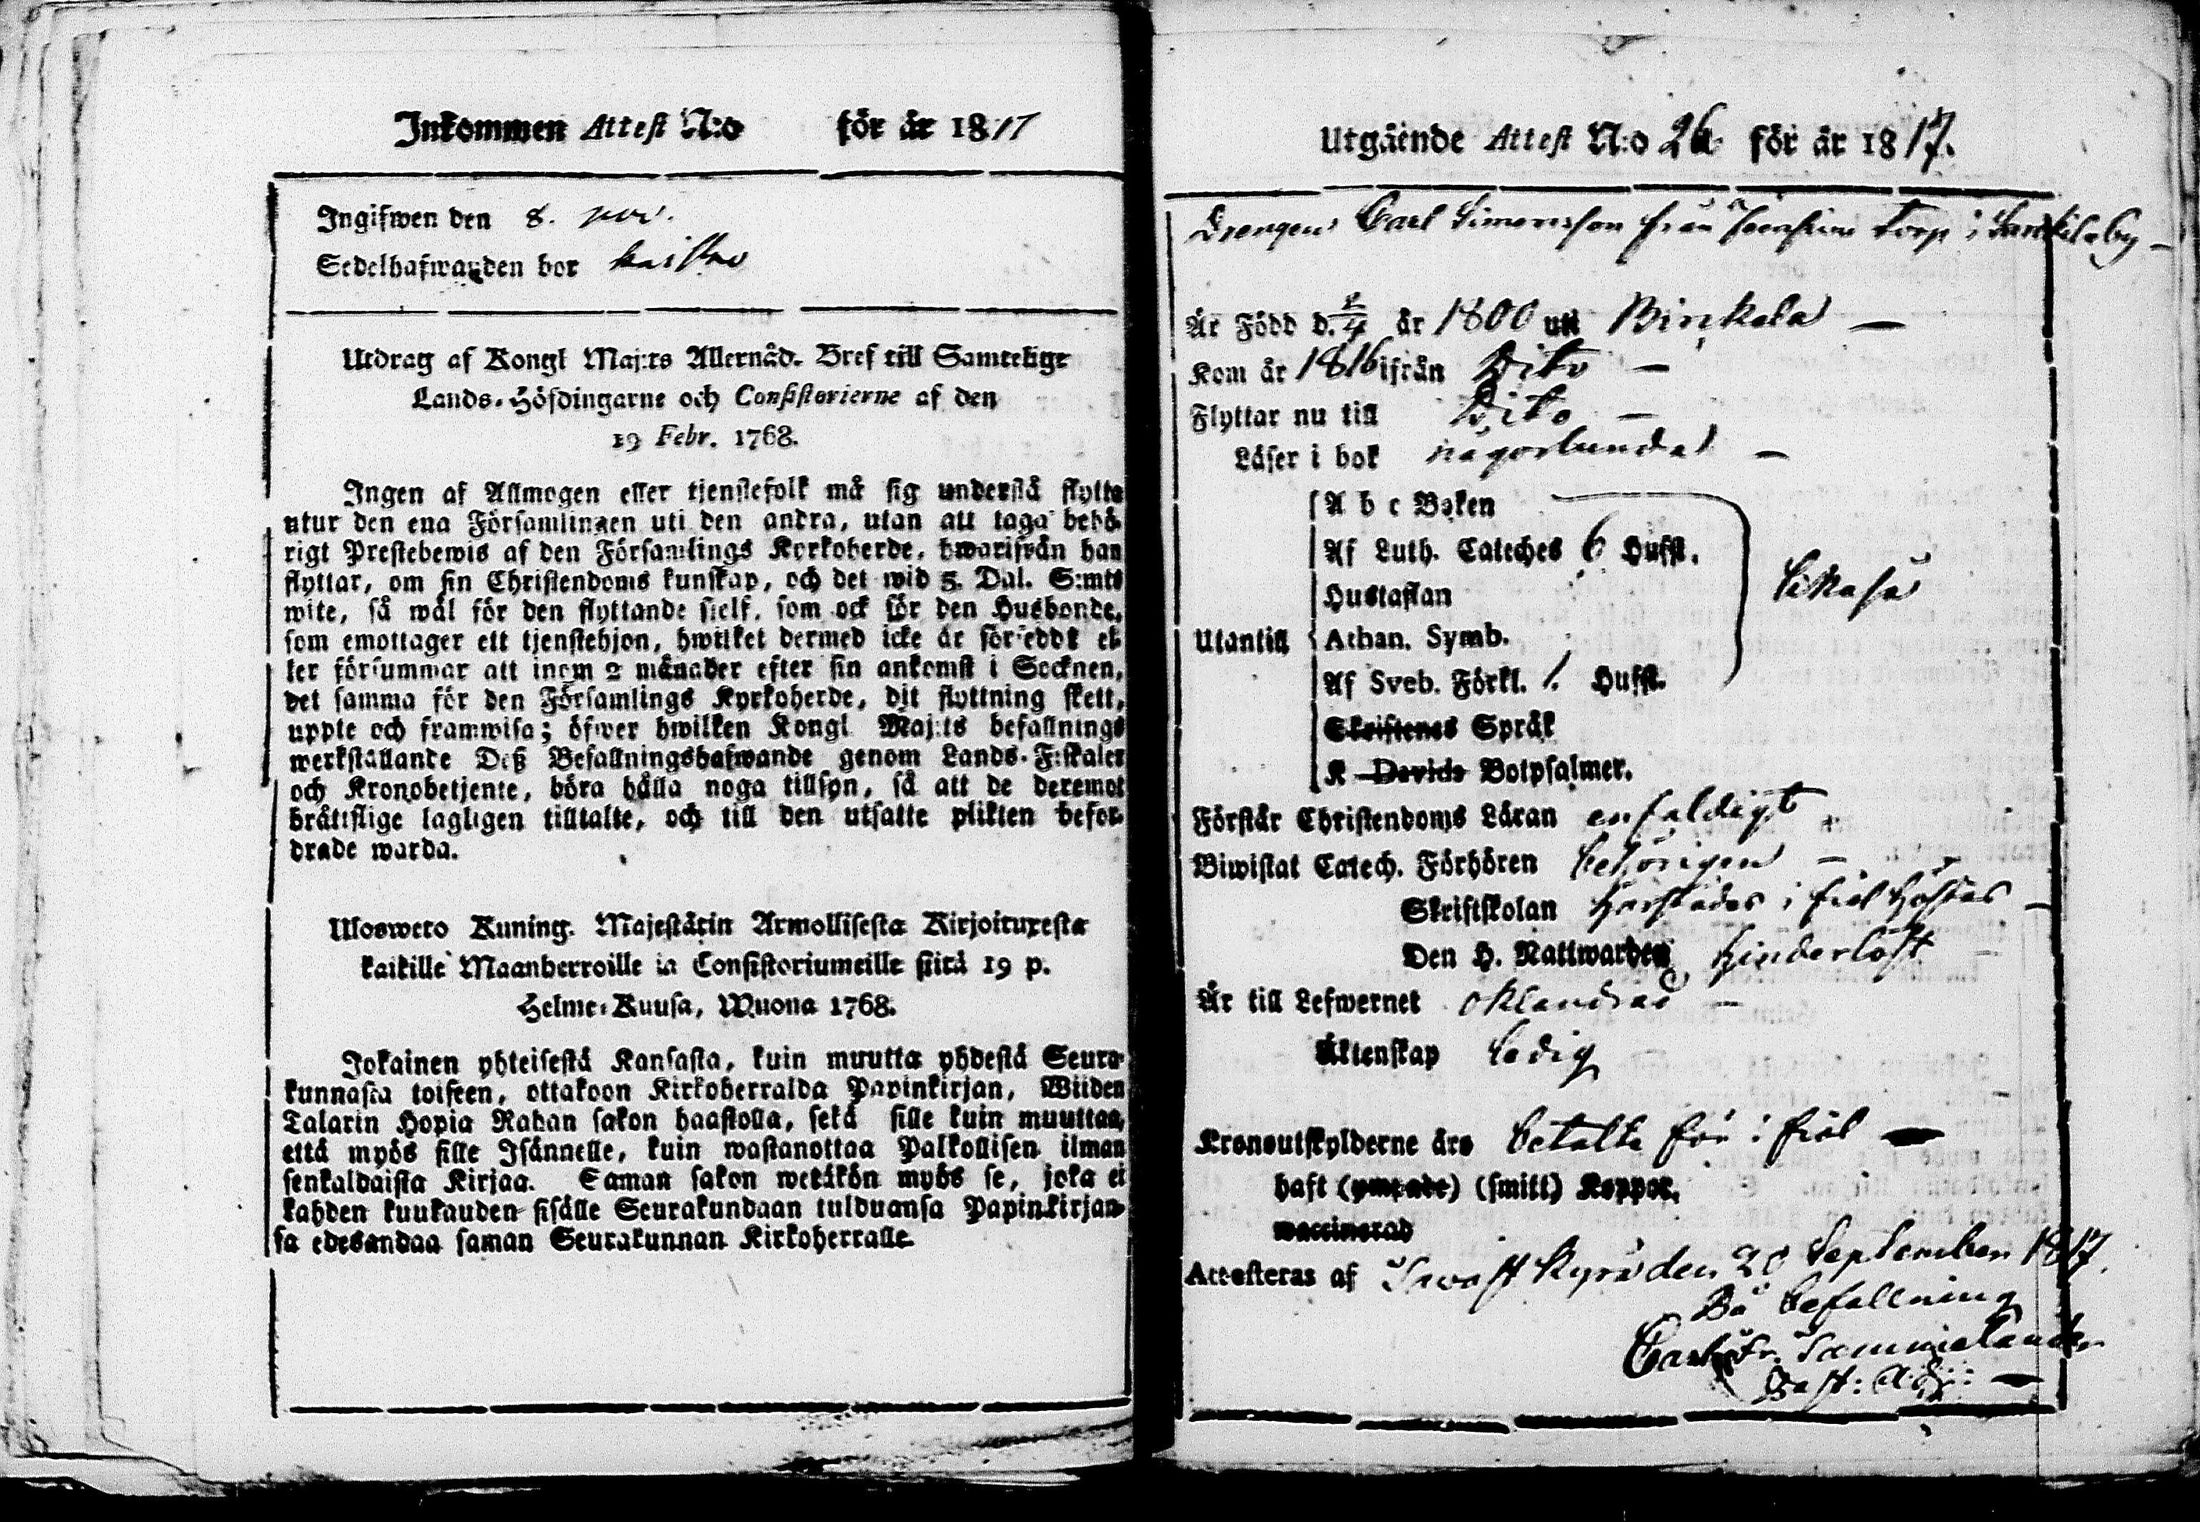 Inkommen Attest N:o för år 1817
Ingifwen den 8. nov.
Sedelhafwanden bor
Utdrag af Kongl Maj:ts Allernåd. Bref till Samtelige
Lands-Höfdingarne och Consistorierne af den
19 Febr. 1768.
Ingen af Allmogen eller tjenstefolk må sig understå flytta
utur den ena Församlingen uti den andra, utan att taga behö-
rigt Prestebewis af den Församlings Kyrkoherde, hwarifrån han
flyttar, om sin Christendoms kunskap, och det wid 5. Dal. S:mts
wite, så wäl för den flyttande sielf, som ock för den Husbonde,
som emottager ett tjenstehjon, hwilket dermed icke är försedt el-
ler försummar att inom 2 månader efter sin ankomst i Socknen,
det samma för den Församlings Kyrkoherde, dit flyttning skett,
uppte och framwisa; öfwer hwilken Kongl Maj:ts befallnings
werkställande Deß Befallningshafwande genom Lands-Fiskaler
och Kronobetjente, böra hålla noga tillsyn, så att de deremot
bråttslige lagligen tilltalte, och till den utsatte plikten befor-
drade warda.
Uloswero Kuning. Majestätin Armollisesta Kirjoituxesta
kaikille Maanherroille ja Consistoriumeille siitä 19 p.
Helme-Kuusa, Wuona 1768.
Jokainen yhteisestä Kansasta, kuin muutta yhdestä Seura-
kunnasta toiseen, ottakoon Kirkoherralda Papinkirjan, Wiiden
Talarin Hopia Rahan sakon haastolla, sekä sille kuin muuttaa,
että myös sille Isännelle, kuin wastanottaa Palkollisen ilman
senkaldaista Kirjaa. Saman sakon wetäkön myös se, joka ei
kahden kuukauden sisälle Seurakundaan tulduansa Papinkirjan-
sa edesandaa saman Seurakunnan Kirkoherralle.
Utgående Attest N:o 26 för år 1817.
Drengen Carl Simonsson från torp i
Är Född d. 2/4 år 1800 uti Birkala —
Kom år 1816 ifrån Dito —
Flyttar nu till Dito —
Läser i bok någorlunda —
A b c Boken
Af Luth. Cateches 6 Hufst.
Hustaflan
Utantill Athan. Symb.
Af Sveb. Förkl. 1. Hufst.
Skriftenes Språk
K Davids Botpsalmer.
Förstår Christendoms Läran enfaldigt
Biwistat Catech. Förhören behörigen —
Skriftskolan i fjol höstas —
Den H. Nattwarden hinderlöst —
Är till Lefwernet oklandrad —
Äktenskap ledig
Kronoutskylderne äro betalte för i fjol —
haft (ympade) (smitt) Koppor.
waccinerad
Attesteras af Tavastkyrö den 20 September 1817.
På befallning
Carl Fr.
Past: Adj: —